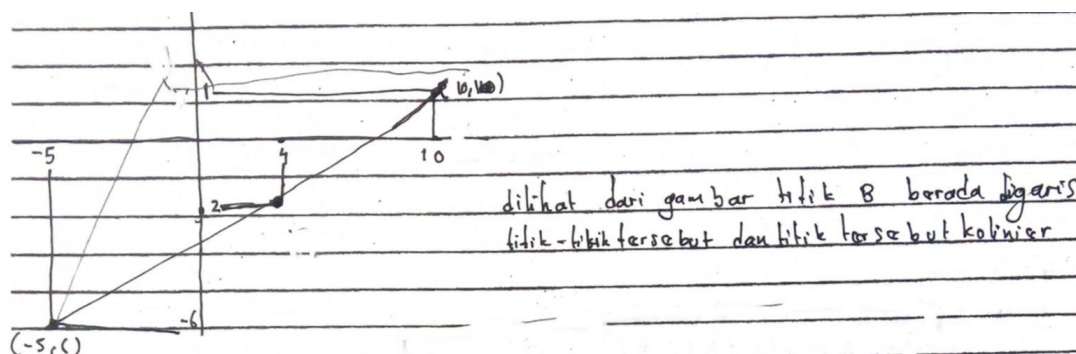 1
-5
4
10
2
dilihat dari gambar titik B berada digaris
titik-titik tersebut dan titik tersebut kolinier
-6